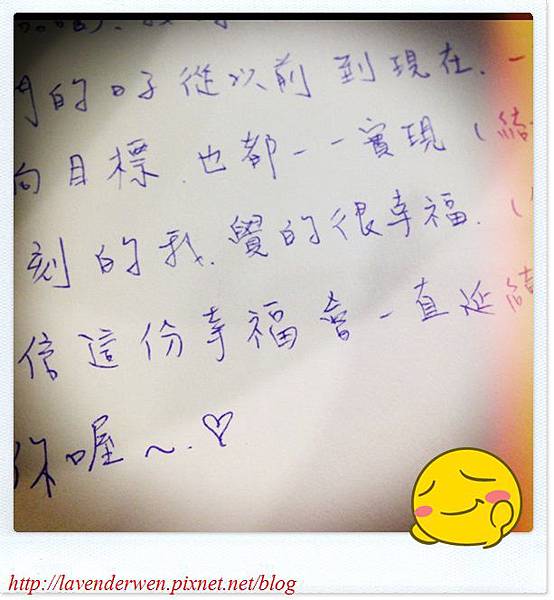 的日子從以前到現在.一
向目標.也都一一實現(結
刻的我.覺的很幸福.(
信這份幸福會一直延續
你喔~.♡
http://lavenderwen.pixnet.net/blog